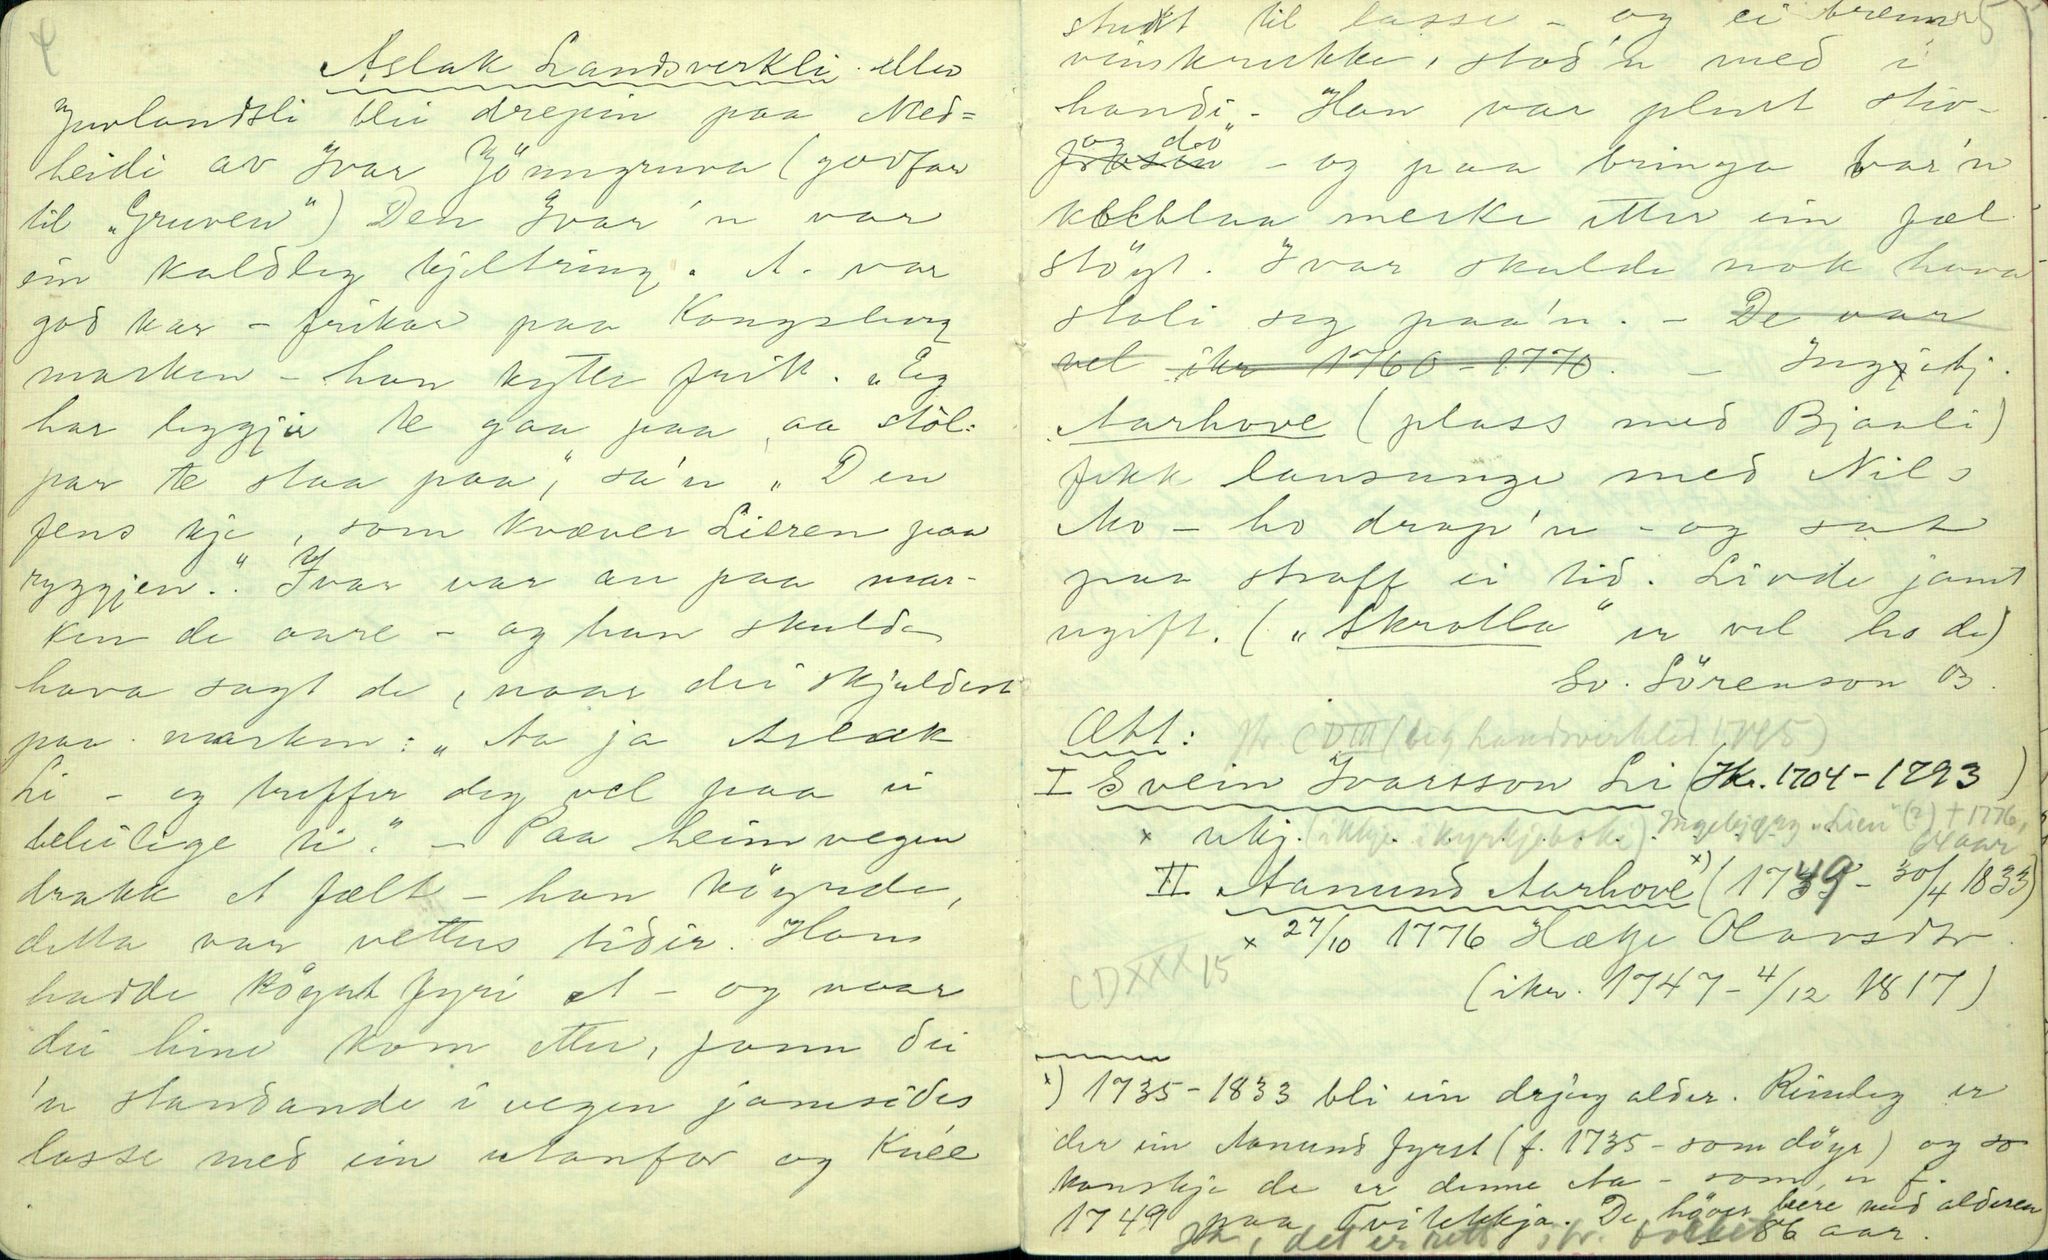 4
Aslak Landsverkli eller
Jurlandsli blei drepin paa Med=
heidi av Ivar Jönngruva (godfar
til „Gruven") Den Ivar'n var
ein kaldleg kjeltring. A. var
god kar - frikar paa Kongsberg
marken - han kytte frik. „Eg
har leggjir te gaa paa aa stöl-
par te staa paa", sa'n „Den
fens kje, som kvæver Lieren paa
ryggjen.". Ivar var an paa mar-
ken de aare - og han skulde
hava sagt de, naar dei skjeldest
paa marken: „Aa ja Aslak
Li - eg treffer deg vel paa ei
beleilige ti." - Paa heimvegen
drakk A fælt - han köyrde,
detta var vettes tider. Hans
hadde köyrt fyri A - og naar
dei hine kom etter, fann dei
'n standande i vegen jamsides
lasse med ein utanfor og knee
5
studt til lasse - og ei brenne
vinskrukke, stod'n med i
handi. Han var plent stiv-
frosin og dö" - og paa bringa var'n
kolblaa merke etter ein fæl
stöyt. Ivar skulde nok hava
stoli seg paa'n. - De var
vel ikr 1760-1770. - Ingjebj.
Aarhove (plass med Bjaali)
fekk lausunge med Nils
Mo - ho drap'n - og sat
paa straff ei tid. Livde jamt
ugift. („Skrolla" er vel ho de)
Sv. Sörenson B.
Ætt: str. CDIII (byg Landsverklid 1795)
I Svein Ivarsson Li (Ikr. 1704-1793)
x ukj. (ikkje i kyrkjeboki) Ingebjørg „Lien" (?) † 1776,
aar
II Aanund Aarhove x) (1749 - 30/4 1833)
x 27/10 1776 Hæge Olavsdtr.
CDXXX 15
(ikr. 1747 - 4/12 1817)
x) 1735-1833 bli ein drjug alder. Rimeleg er
der ein Aanund fyrst (f. 1735 - som döyr) og so
kanskje de er denne Aa - som er f.
1749 paa Tveitekkja. De höver bere med alderen
86 aar.
Ja, det er rett